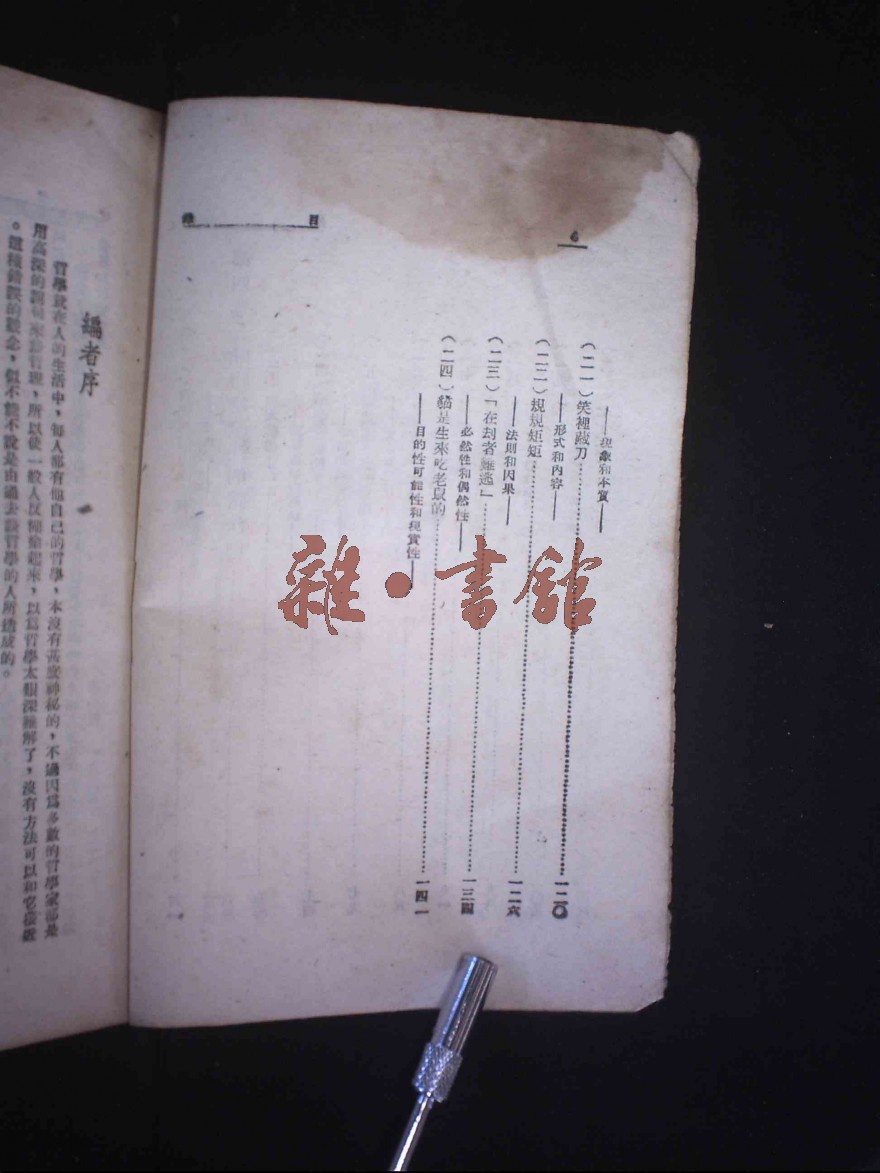 目錄
6
——現象和本質——
（二一）笑裡藏刀⋯⋯一二〇
——形式和內容——
（二二）規規矩矩⋯⋯一二六
——法則和因果——
（二三）「在劫者難逃」⋯⋯一三四
——必然性和偶然性——
（二四）貓是生來吃老鼠的⋯⋯一四一
——目的性可能性和現實性——
雜·書館
編者序
哲學就在人的生活中，每人都有他自己的哲學，本沒有甚麼神秘的，不過因爲多數的哲學家都是
用高深的來，所以使一般人反倒起來，以爲哲學太艱深難解了，沒有方法可以和它接近
。這種錯誤的觀念，似不能不說是由過去談哲學的人所造成的。